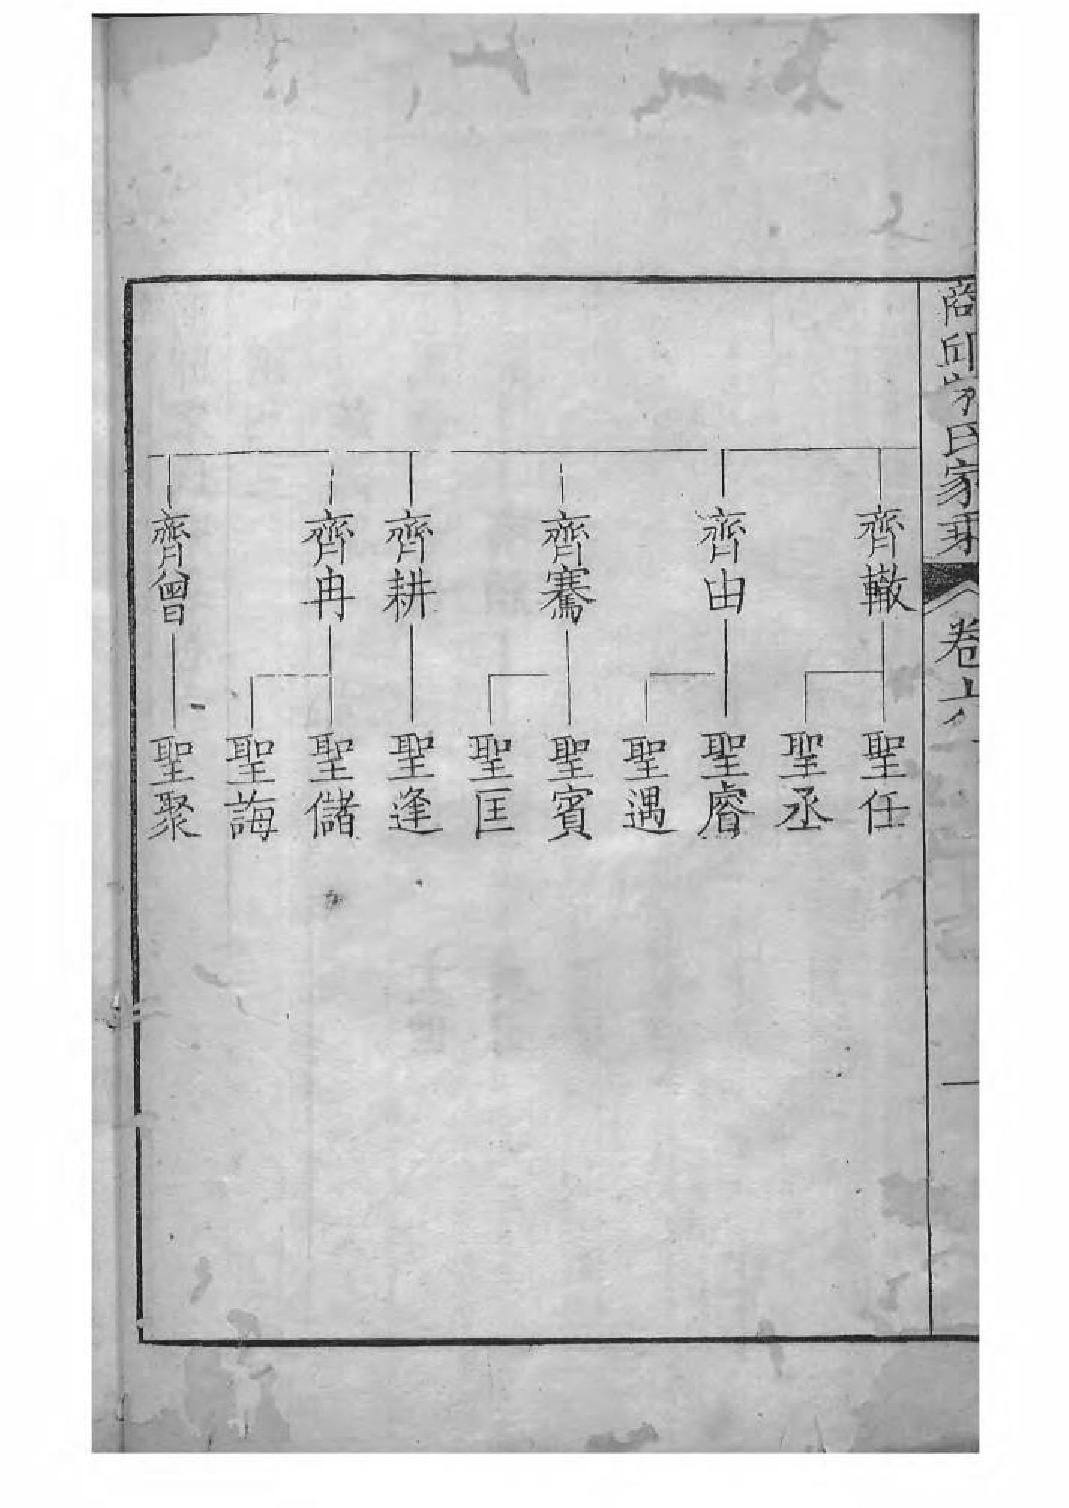 商邱宋氏家乗
卷六
齊轍
聖任
聖丞
齊由
聖睿
聖遇
齊騫
聖賓
聖匡
齊耕
聖逢
齊冉
聖儲
聖誨
齊曾
聖聚